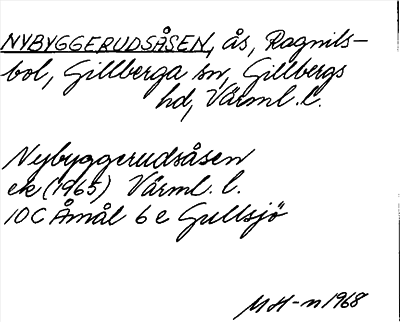 NYBYGGERUDSÅSEN, ås, Ragnils-
bol, Gillberga sn, Gillbergs
hd, Värml. l.
Nybyggerudsåsen
ek (1965) Värml. l.
10C Åmål 6 e Gullsjö
MH-n 1968